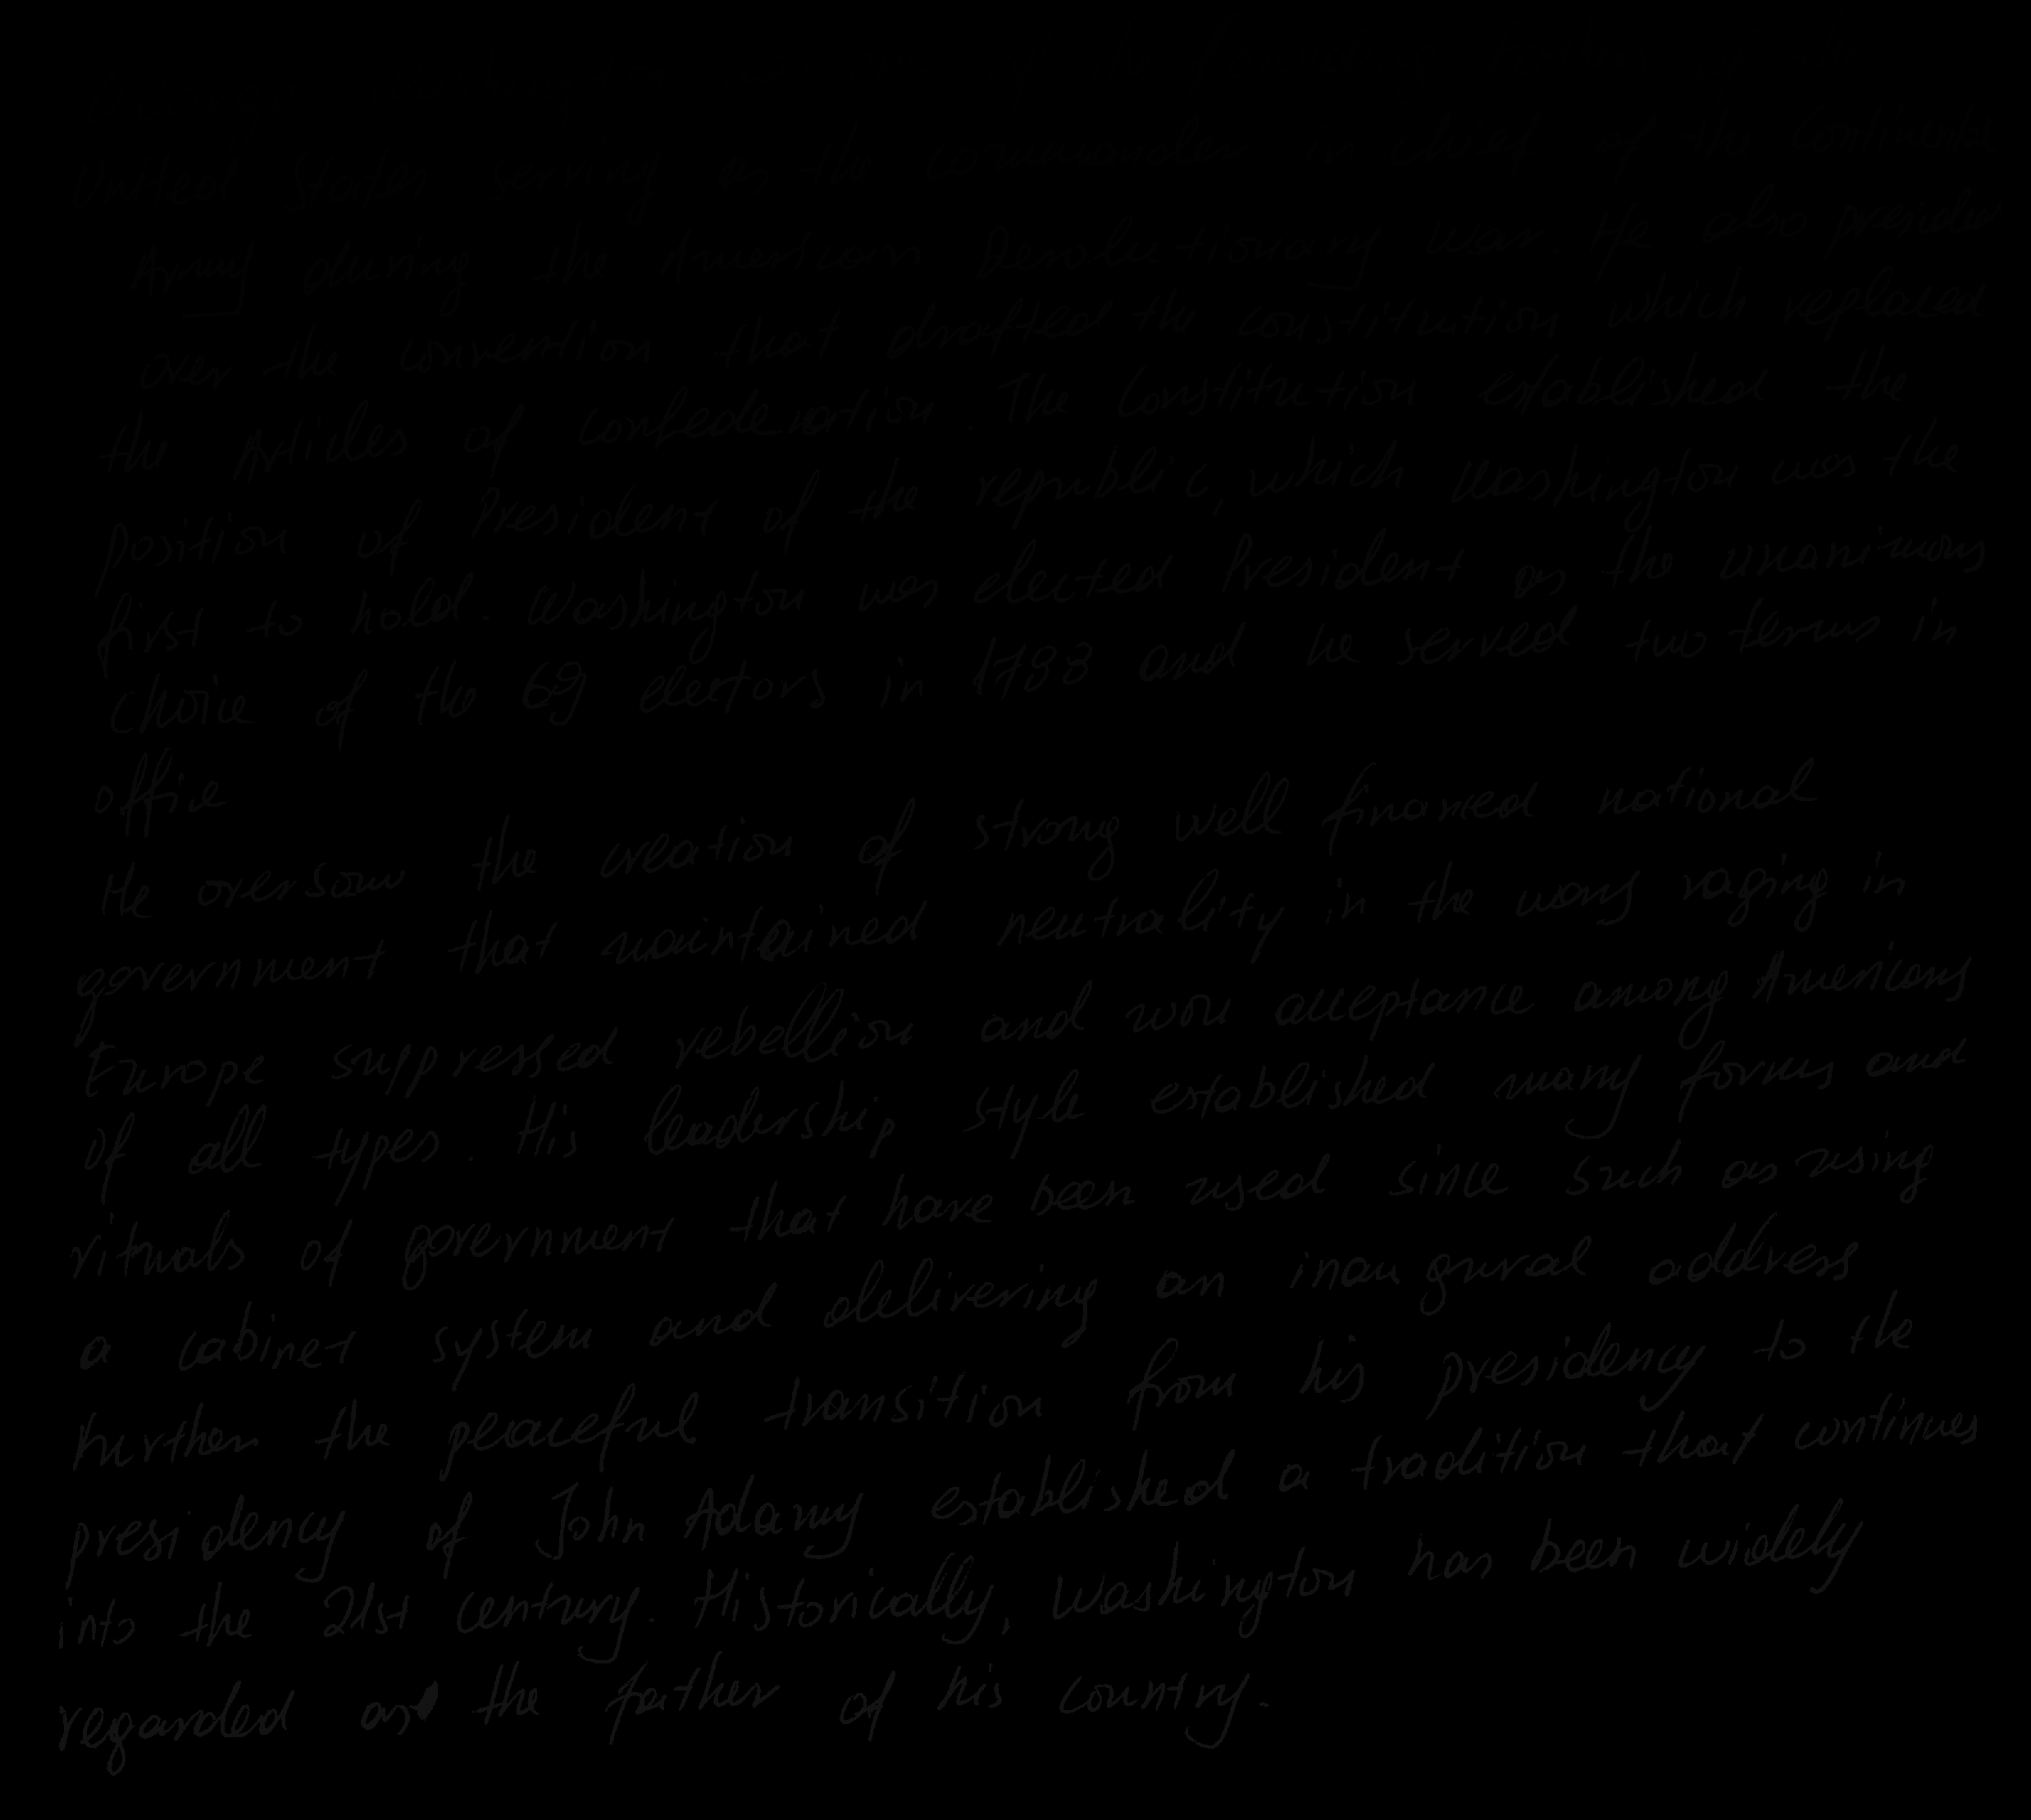 United States serving as the commander in chief of the Continental
Army during the American Revolutionary War. He also presided
over the convention that drafted the constitution which replaced
the Articles of Confederation. The Constitution established the
position of President of the republic, which Washington was the
first to hold. Washington was elected President as the unanimous
choice of the 69 electors in 1788 and he served two terms in
office
He oversaw the creation of strong well financed national
government that maintained neutrality in the wars raging in
Europe suppressed rebellion and won acceptance among Americans
of all types. His leadership style established many forms and
rituals of government that have been used since such as using
a cabinet system and delivering an inaugural address
further the peaceful transition from his presidency to the
presidency of John Adams established a tradition that continues
into the 21st century. Historically, Washington has been widely
regarded as the father of his country.